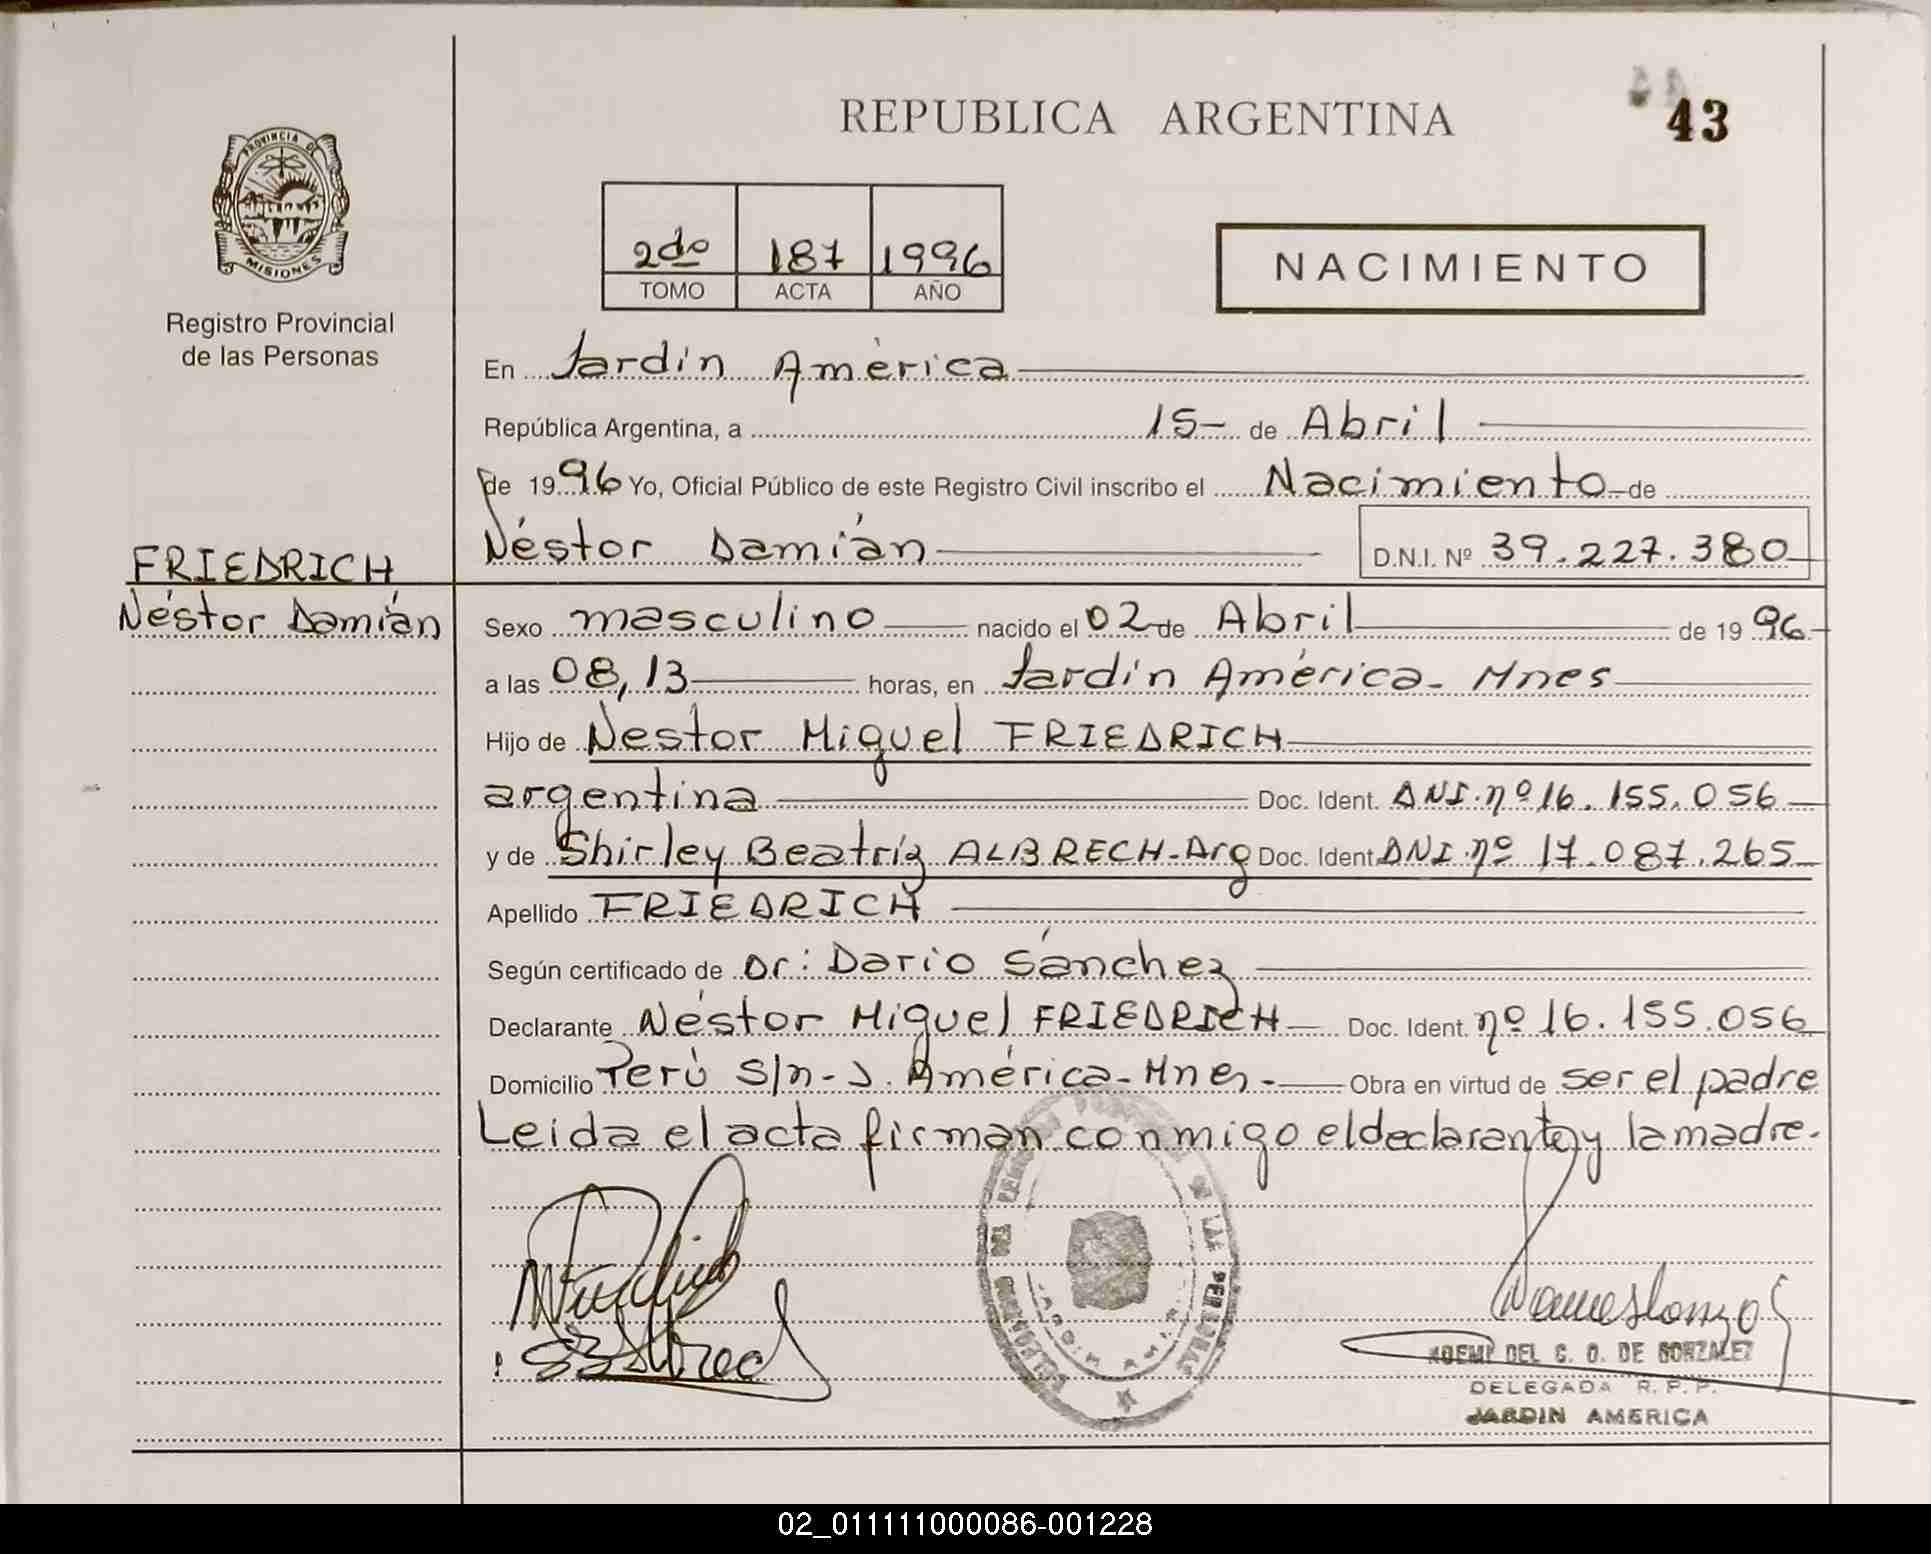 REPUBLICA ARGENTINA
43
PROVINCIA DE
MISIONES
Registro Provincial
de las Personas
2do 187 1996
TOMO ACTA AÑO
NACIMIENTO
En Jardín América
República Argentina, a 15- de Abril
de 1996 Yo, Oficial Público de este Registro Civil inscribo el Nacimiento de
Néstor Damián D.N.I. Nº 39.227.380
FRIEDRICH
Néstor Damián
Sexo masculino nacido el 02 de Abril de 1996
a las 08,13 horas, en Jardín América- Mnes
Hijo de Nestor Miguel FRIEDRICH
argentina Doc. Ident. DNI. nº 16.155.056
y de Shirley Beatríz ALBRECH-Arg Doc. Ident. DNI. nº 17.087.265
Apellido FRIEDRICH
Según certificado de Dr: Dario Sánchez
Declarante Néstor Miguel FRIEDRICH Doc. Ident. nº 16.155.056
Domicilio Perú S/n- J. América- Mnes- Obra en virtud de ser el padre
Leida el acta firman conmigo el declarante y la madre.
NOEMI DEL C. O. DE GONZALEZ
DELEGADA R.P.P.
JARDIN AMERICA
02_011111000086-001228